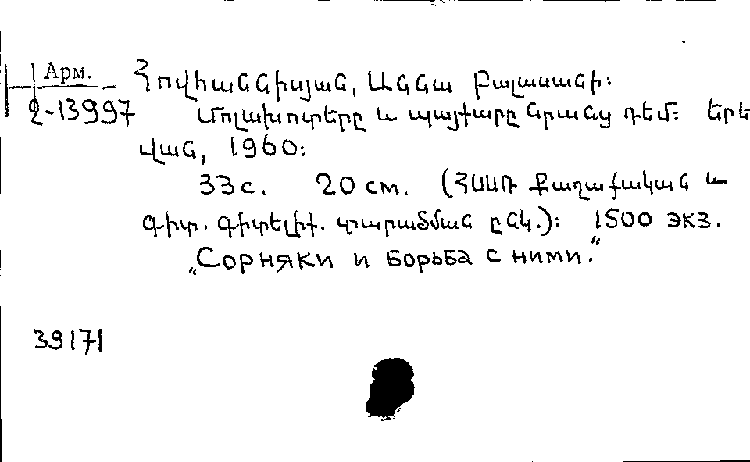 Арм. Հովհաննիսյան, Աննա Բալասանի։
2-13997 Մոլախոտերը և պայքարը նրանց դեմ։ Երե
վան, 1960։
33 с. 20 см. (ՀՍՍՌ Քաղաքական և
գիտ. գիտելիք. տարածման ընկ.)։ 1500 экз.
„Сорняки и борьба с ними.“
39171